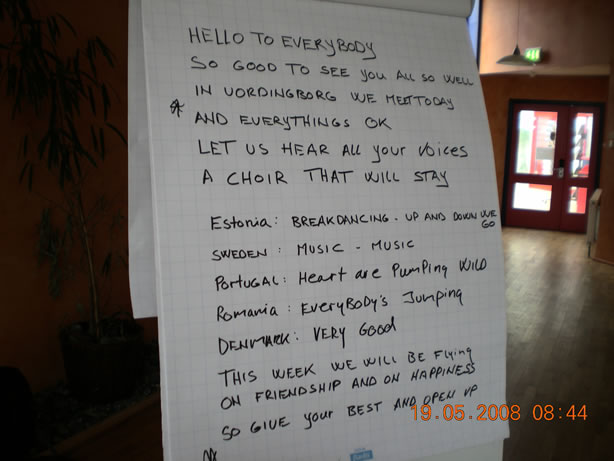 HELLO TO EVERYBODY
SO GOOD TO SEE you ALL SO WELL
IN VORDINGBORG WE MEET TODAY
* AND EVERYTHINGS OK
LET US HEAR ALL your Voices
A CHOIR THAT WILL STAY
Estonia: BREAKDANCING - UP AND DOWN WE
GO
SWEDEN: MUSIC - MUSIC
PORTUGAL: Heart are Pumping WILD
Romania: EveryBody's Jumping
DENMARK: VERY Good
THIS WEEK WE WILL BE Flying
ON FRIENDSHIP AND ON HAPPINESS
SO GIVE your BEST AND OPEN UP
19.05.2008 08:44